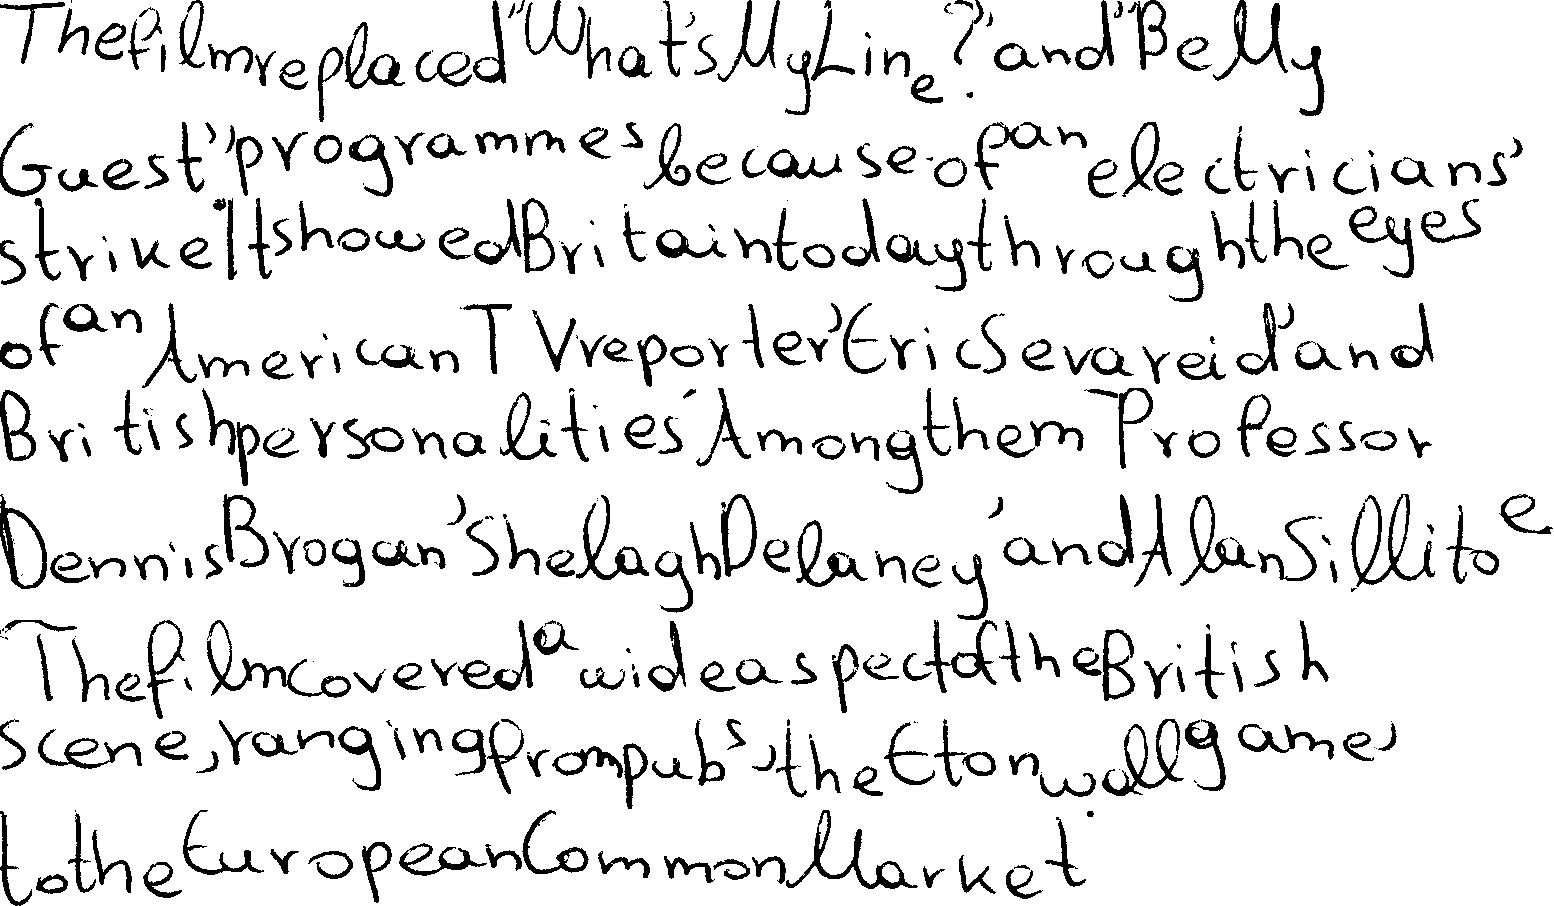 The film replaced "What's My Line?" and "Be My
Guest" programmes because of an electricians'
strike. It showed Britain today through the eyes
of an American TV reporter, Eric Sevareid, and
British personalities. Among them Professor
Dennis Brogan, Shelagh Delaney, and Alan Sillitoe
The film covered a wide aspect of the British
scene, ranging from pubs, the Eton wall game,
to the European Common Market.